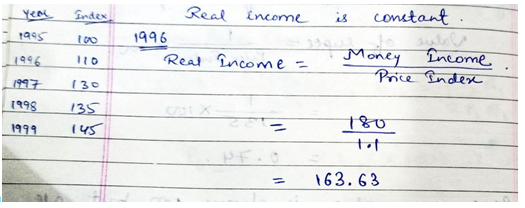 Year Index Real income is constant.
1995 100 1996
1996 110 Real Income = Money Income / Price Index.
1997 130
1998 135
1999 145 = 180 / 1.1
= 163.63